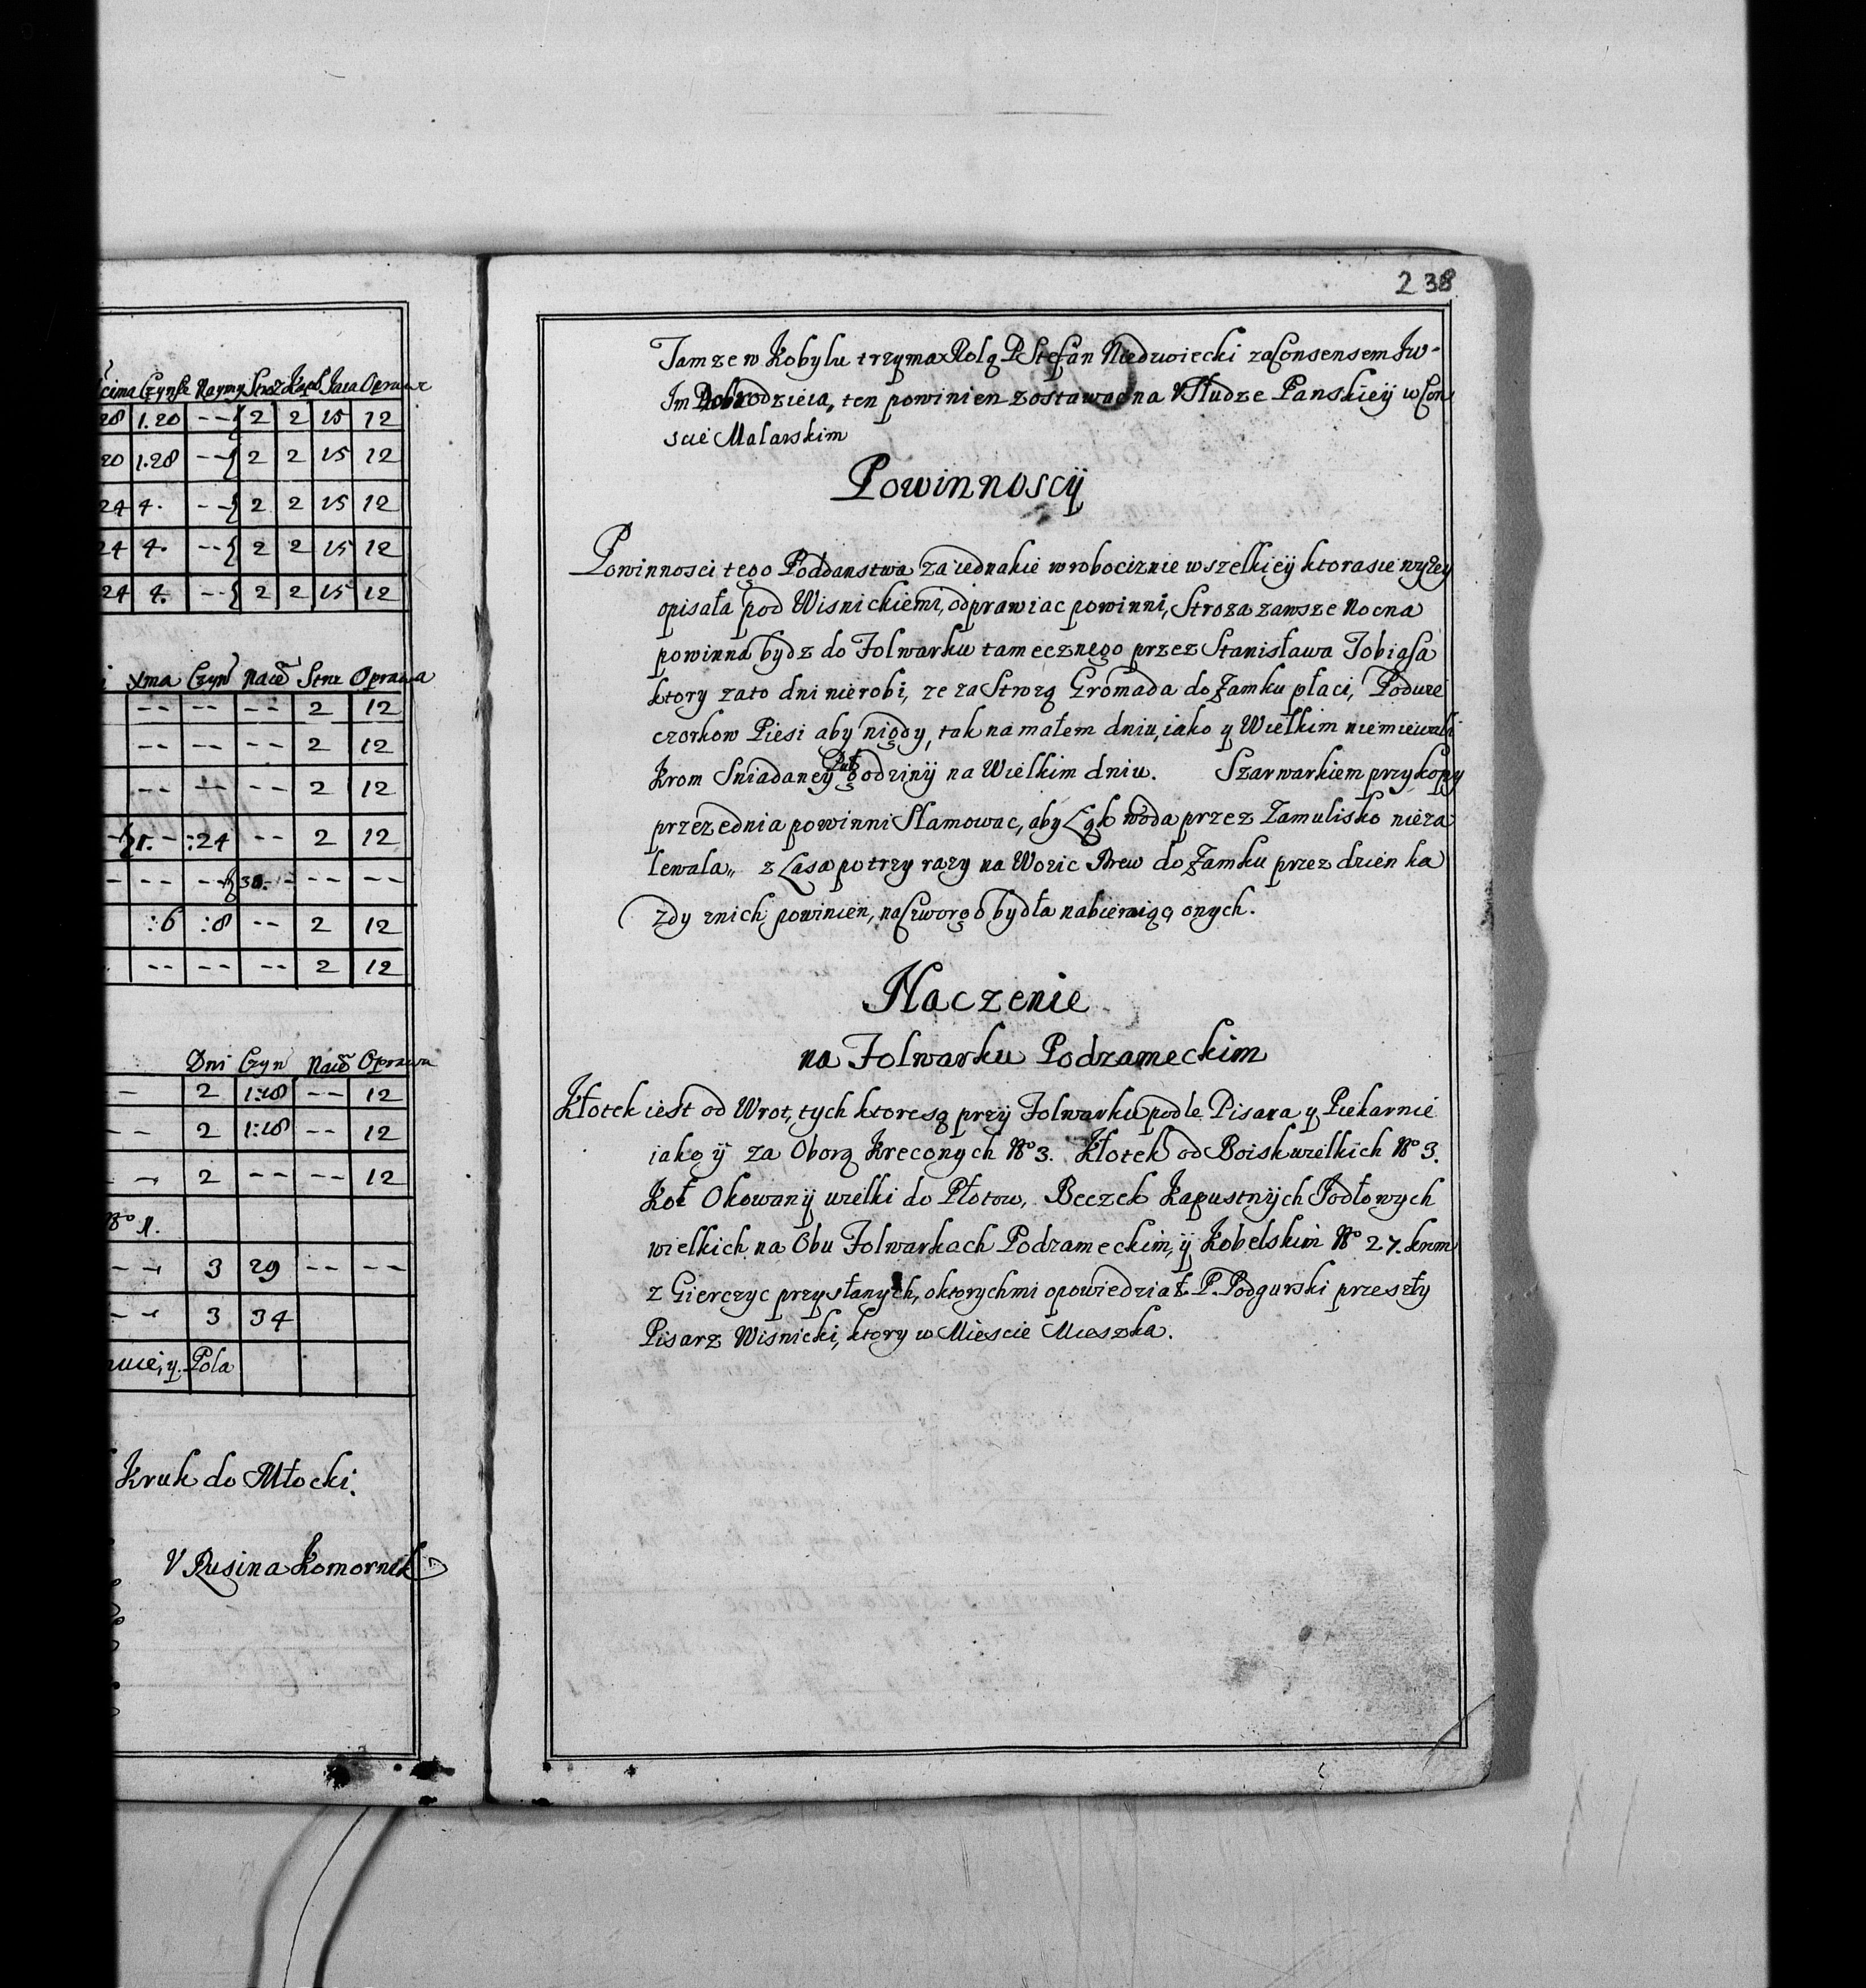 238
cima Czynsz Naymy Stroż Kapł Jaca Opraw
28 1.20 -- 2 2 15 12
20 1.28 -- 2 2 15 12
24 4. -- 2 2 15 12
24 4. -- 2 2 15 12
24 4. -- 2 2 15 12
Czyn Strz Oprawa
-- -- -- 2 12
-- -- -- 2 12
-- -- -- 2 12
1.- :24 -- 2 12
- -- -- 30.- -- --
:6 :8 -- 2 12
-- -- -- 2 12
Dni Czyn Oprawa
- 2 1:18 -- 12
-- 2 1:18 -- 12
-- 2 -- -- 12
-- 3 29 -- --
-- 3 34
y. Pola
Kruk do Młocki.
V Rusina Komornik
Tamze w Kobylu trzyma Rolą P Stefan Niedzwiecki za Consensem Jw-
Im Dobrodzieia, ten powinien zostawac na Vsłudze Panskieÿ w Con
scie Malarskim
Powinnoscÿ
Powinnosci tego Poddanstwa za iednakie w robociznie wszelkieÿ ktora sie wyzey
opisała pod Wisnickiemi, odprawiac powinni, Stroza zawsze Nocna
powinna bydz do Folwarku tamecznego przez Stanisława Tobiasa
ktory zato dni nierobi, ze za Strozą Gromada do Zamku płaci, Poduie
czorkow Piesi aby nigdy, tak na małem dniu, iako y Wielkim niemiewali
Krom Sniadaneÿ Puł godzinÿ na Wielkim dniu. Szarwarkiem przykopy
przezednia powinni Slamowac, aby Łąk woda przez Zamulisko nieza
lewala,, z Lasa po trzy razy na Wozic Drew do Zamku przez dzien ka
zdy z nich powinien, na Czworo bydła nabieraigą onych.
Naczenie
na Folwarku Podzameckim
Kłotek iest od Wrot, tych ktore są przÿ Folwarku podle Pisara y Piekarnie
iako ÿ za Oborą Kreconych No 3. Kłotek od Boisk wielkich No 3.
Koł Okowanÿ wielki do Płotow, Beczek Kapustnÿch Jodłowych
wielkich na Obu Folwarkach Podzameckim, ÿ Kobelskim No 27. krom
z Gierczyc przysłanych, o ktorych mi opowiedział P. Podgurski przeszły
Pisarz Wisnicki, ktory w Miescie Mieszka.